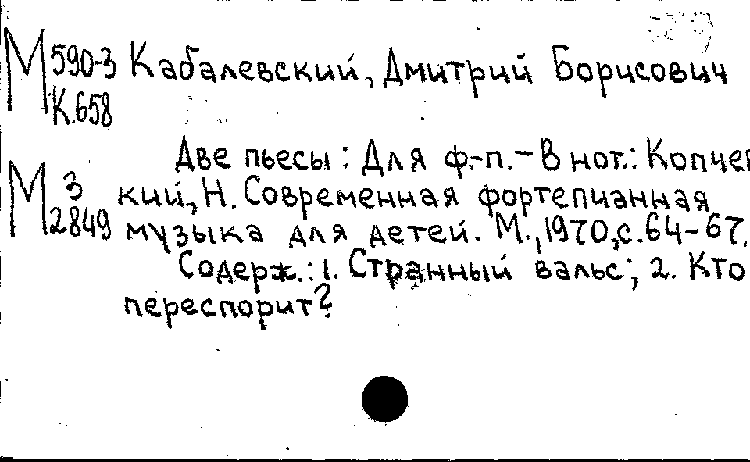 М 590-3 Кабалевский, Дмитрий Борисович
К.658
Две пьесы : Для ф.-п. – В нот.: Копчев
М 3 кий, Н. Современная фортепианная
2849 музыка для детей. М., 1970, с. 64-67.
Содерж.: 1. Странный вальс; 2. Кто
переспорит?